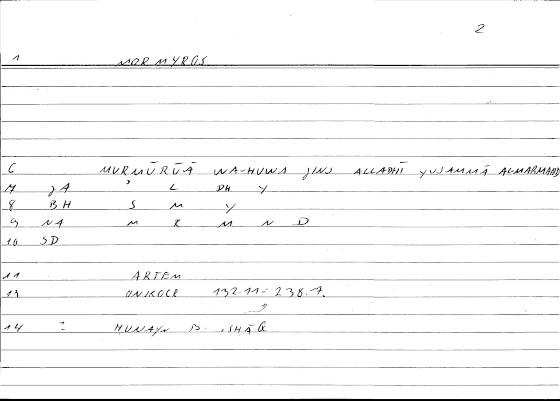 2
1 MORMYROS
6 MURMŪRŪĀ WA-HUWA JINS ALLADHĪ YUSAMMĀ ALMARMAND
7 JA ' L DH Y
8 BH S M Y
9 WA M R M N D
10 SD
11 ARTEM
13 ONIROCR 132.11 - 238.7.
14 : HUNAYN B. ISHĀQ